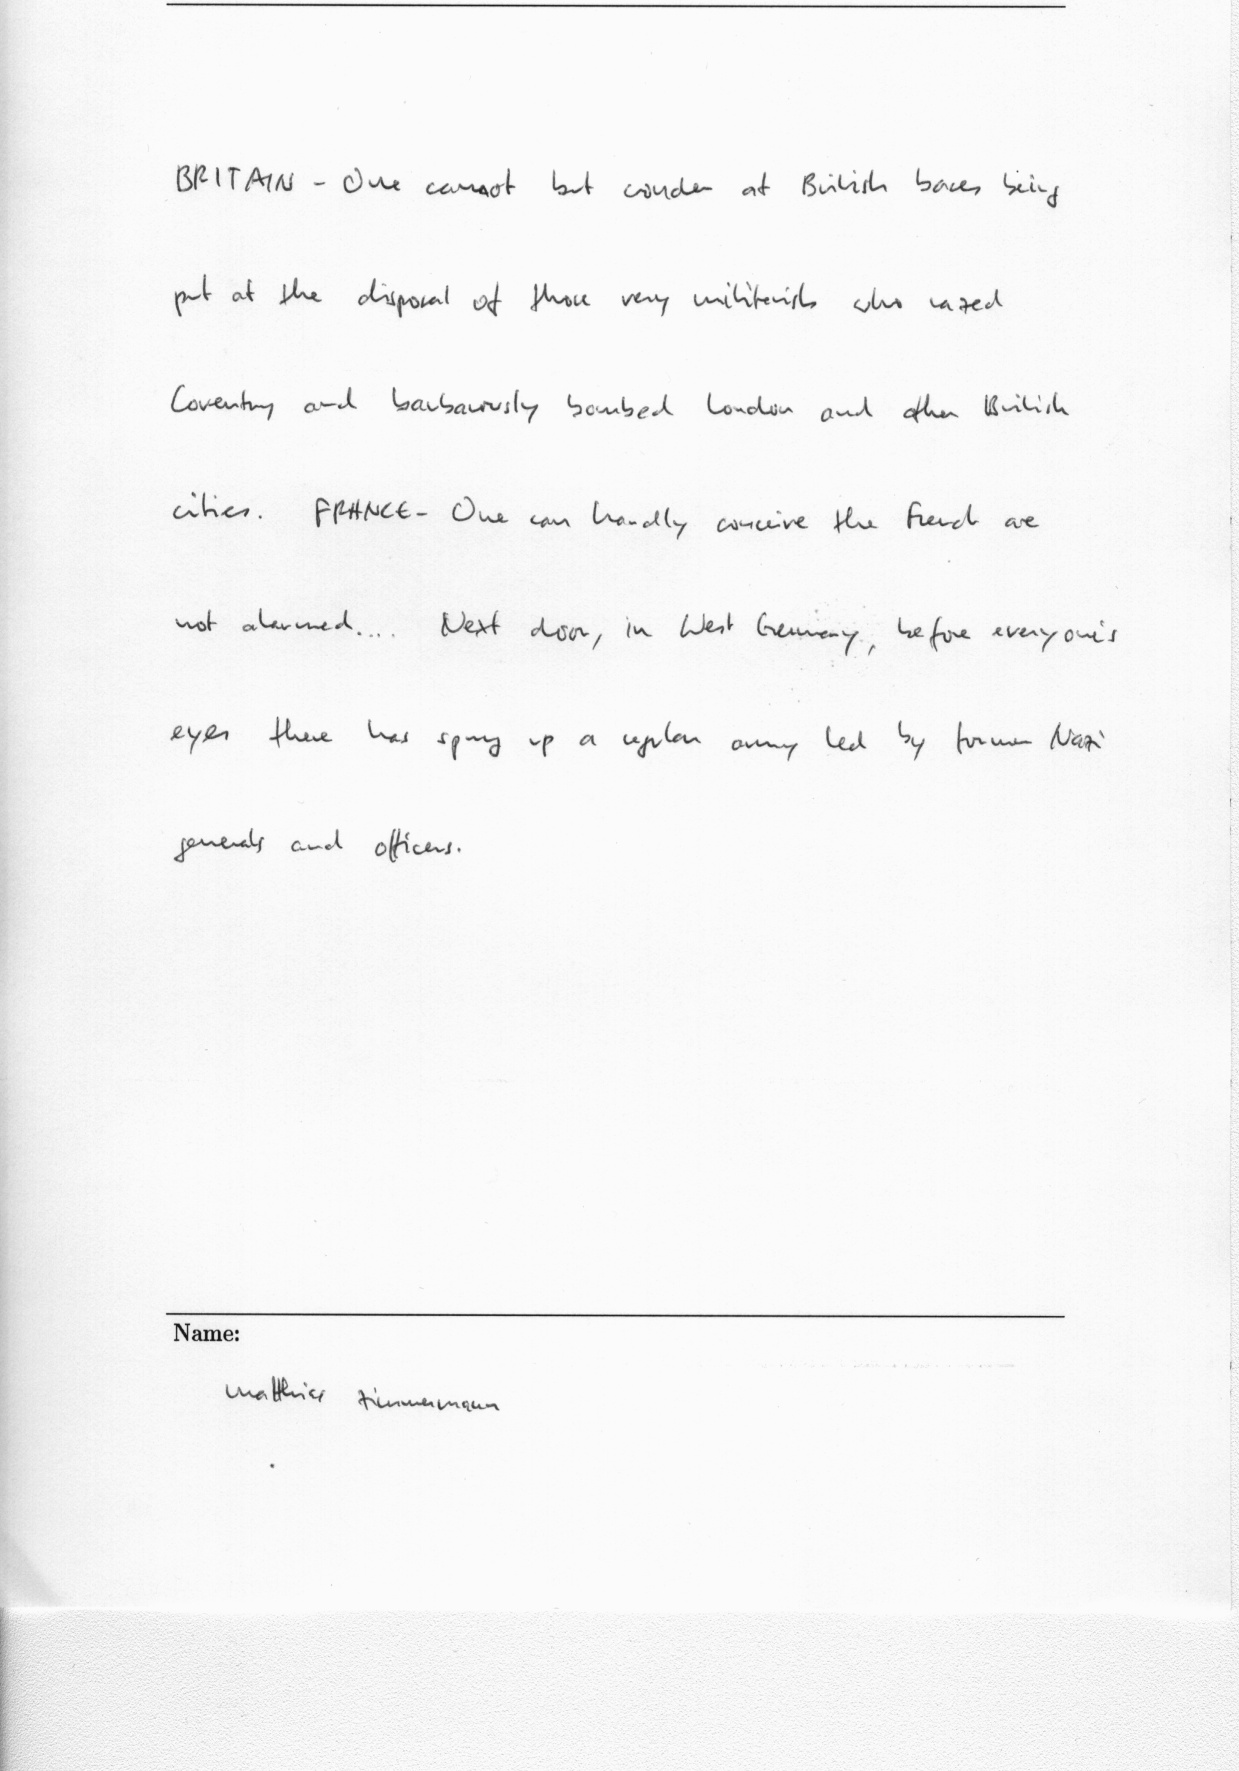 BRITAIN - One cannot but wonder at British bases being
put at the disposal of those very militarists who razed
Coventry and barbarously bombed London and other British
cities. FRANCE - One can hardly conceive the French are
not alarmed.... Next door, in West Germany, before everyone's
eyes there has sprung up a regular army led by former Nazi
generals and officers.
Name:
Matthias Zimmermann